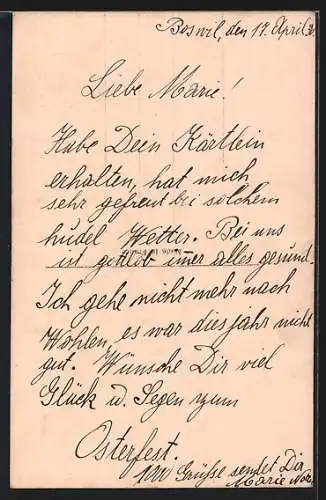 Boswil, den 17. April
Liebe Marie!
Habe Dein Kärtlein
erhalten, hat mich
sehr gefreut bei solchem
hudel Wetter. Bei uns
ist gottlob imer alles gesund.
Ich gehe nicht mehr nach
Wohlen, es war dies jahr nicht
gut. Wünsche Dir viel
Glück u. Segen zum
Osterfest.
1000 Grüsse sendet Dir
Marie